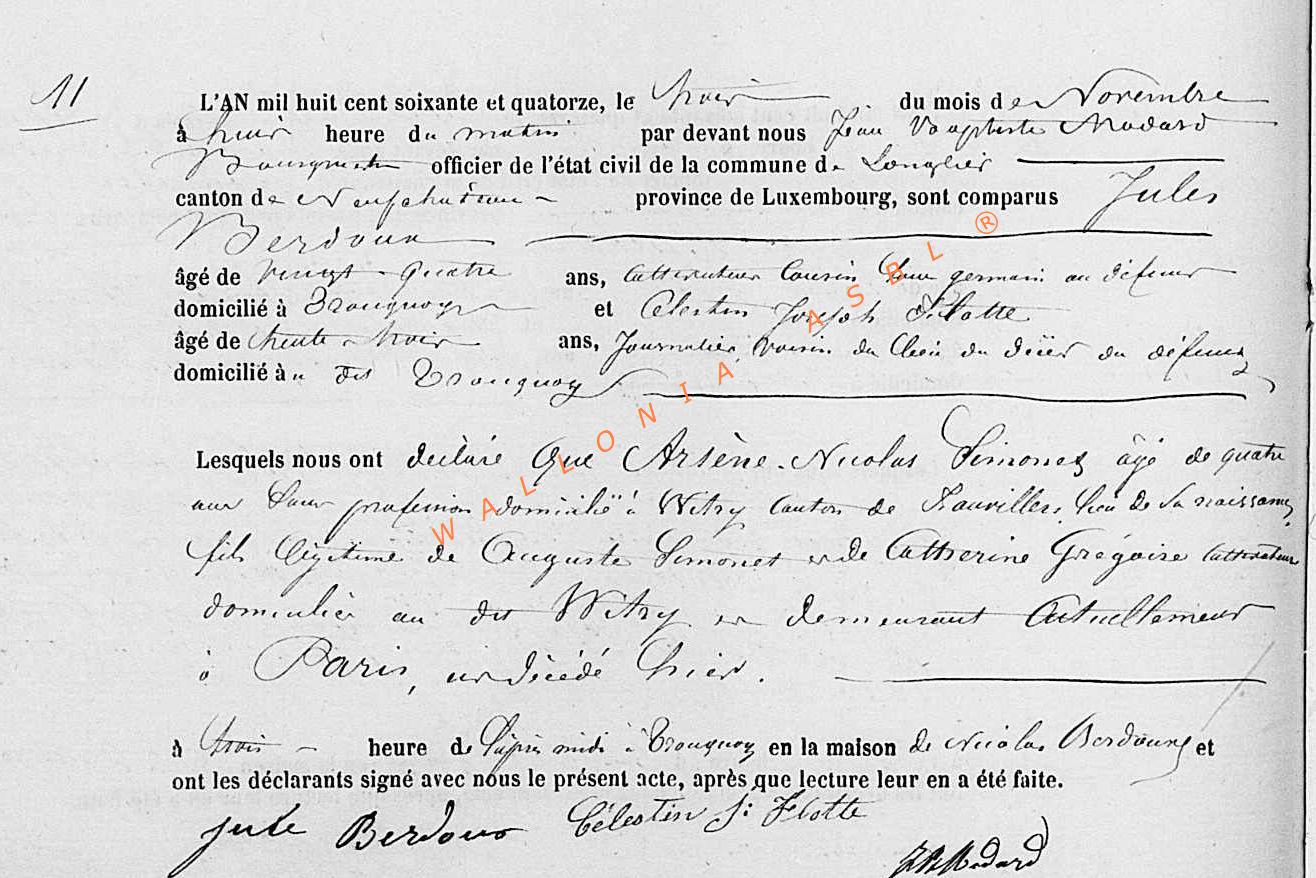 11
L'AN mil huit cent soixante et quatorze, le trois du mois de Novembre
à huit heure du matin par devant nous Jean Baptiste Modard
Bourgmestre officier de l'état civil de la commune de Longlier
canton de Neufchâteau province de Luxembourg, sont comparus Jules
Berdoux
âgé de vingt-quatre ans, cultivateur Cousin Sous germain au défunt
domicilié à Tronquoy et Célestin Joseph Flotte
âgé de trente-trois ans, Journalier, voisin du lieu du décès du défunt
domicilié à u dit Tronquoy
Lesquels nous ont déclaré que Arsène-Nicolas Simonet âgé de quatre
ans Sans profession domicilié à Witry Canton de Fauvillers, lieu de sa naissance,
fils légitime de Auguste Simonet et de Catherine Grégoire Cultivateurs
domiciliés au dit Witry et demeurant Actuellement
à Paris, est décédé hier.
à trois heure de l'après midi à Tronquoy en la maison de Nicolas Berdoux et
ont les déclarants signé avec nous le présent acte, après que lecture leur en a été faite.
Jule Berdoux Célestin J: Flotte
JB Modard
WALLONIA ASBL ®